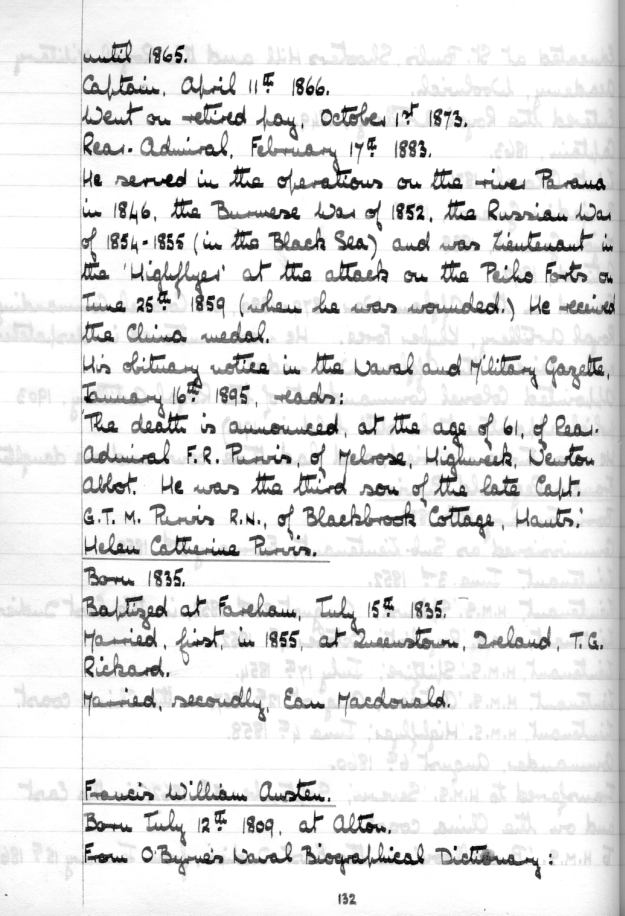 until 1865.
Captain, April 11th 1866.
Went on retired pay, October 1st 1873.
Rear-Admiral, February 17th 1883.
He served in the operations on the river Parana
in 1846, the Burmese War of 1852, the Russian War
of 1854-1855 (in the Black Sea) and was Lieutenant in
the 'Highflyer' at the attack on the Peiho Forts on
June 25th 1859 (when he was wounded.) He received
the China medal.
His obituary notice in the Naval and Military Gazette,
January 16th 1895, reads:
'The death is announced, at the age of 61, of Rear-
Admiral F.R. Purvis, of Melrose, Highweek, Newton
Abbot. He was the third son of the late Capt.
G.T.M. Purvis R.N., of Blackbrook Cottage, Hants.'
Helen Catherine Purvis.
Born 1835.
Baptized at Fareham, July 15th 1835.
Married, first, in 1855, at Queenstown, Ireland, T.G.
Rickard.
Married, secondly, Ean Macdonald.
Francis William Austen.
Born July 12th 1809, at Alton.
From O'Byrne's Naval Biographical Dictionary:
132